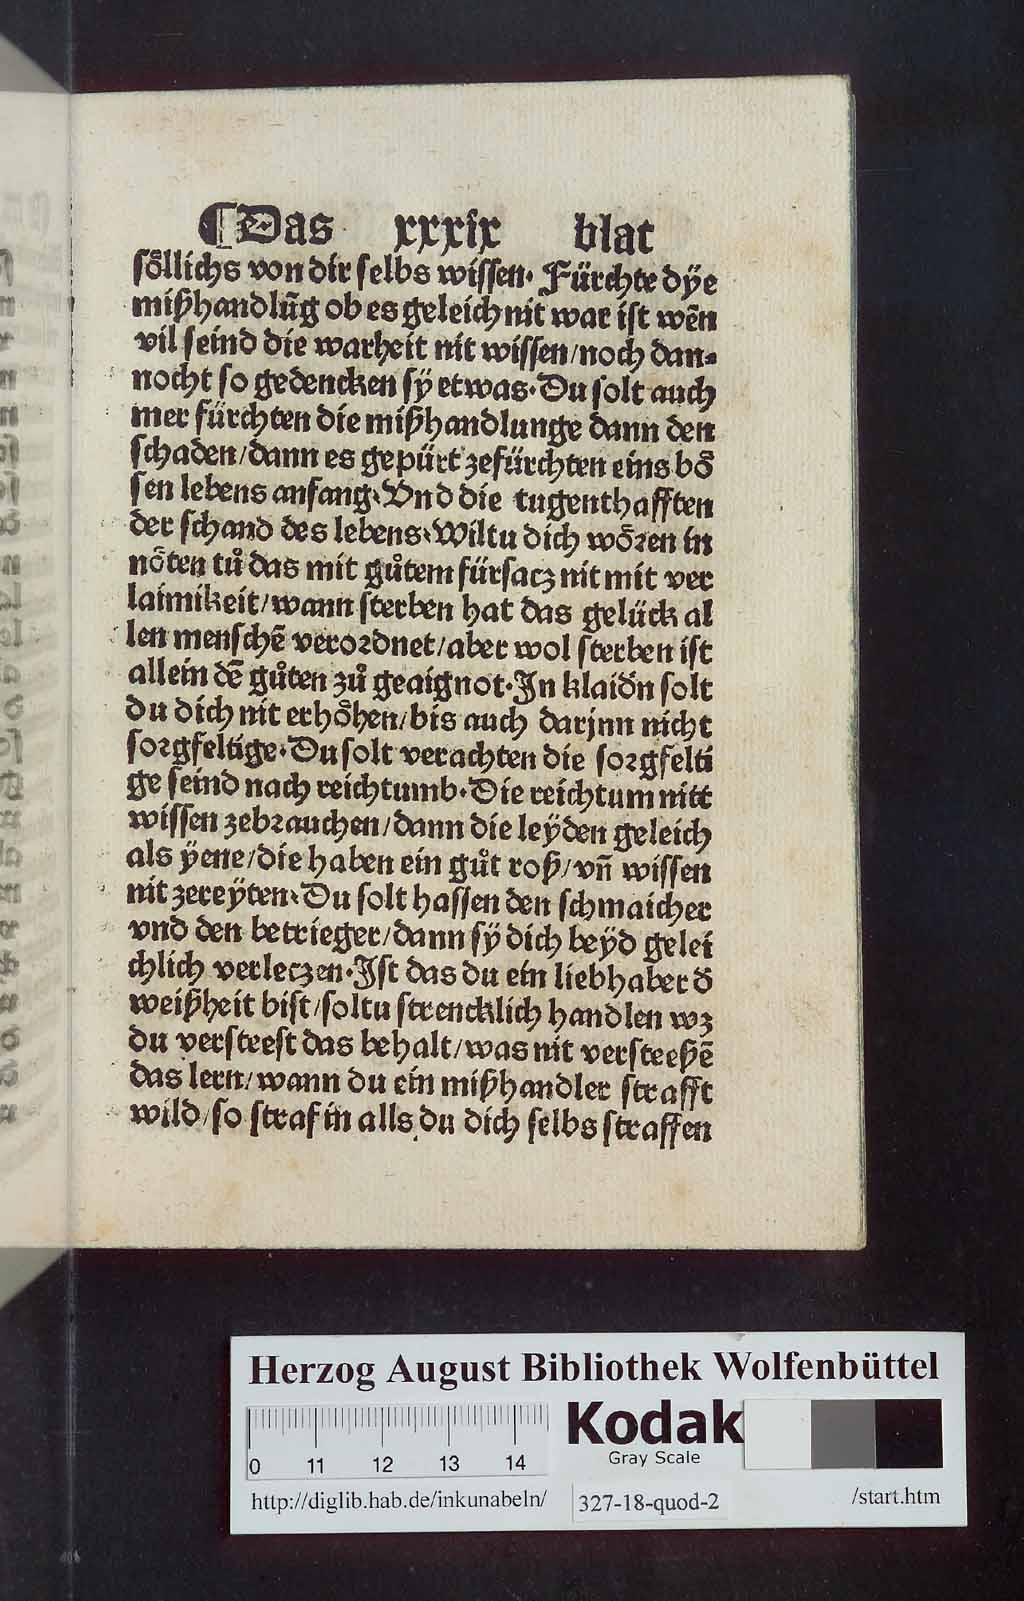 ¶Das xxxix blat
soͤllichs von dir selbs wissen. Fürchte dÿe
mißhandlūg ob es geleich nit war ist wēn
vil seind die warheit nit wissen/noch dan⸗
nocht so gedencken sÿ etwas. Du solt auch
mer fürchten die mißhandlunge dann den
schaden/dann es gepürt zefürchten eins boͤ
sen lebens anfang. Vnd die tugenthafften
der schand des lebens. Wiltu dich woͤꝛen in
noͤten tuͦ das mit guͦtem fürsacz nit mit ver
laimikeit/wann sterben hat das gelück al
len menschē veroꝛdnet/aber wol sterben ist
allein dē guͦten zuͦ geaignot. In klaidn̄ solt
du dich nit erhoͤhen/bis auch darjnn nicht
soꝛgfeltige. Du solt verachten die soꝛgfelti
ge seind nach reichtumb. Die reichtum nitt
wissen zebꝛauchen/dann die leÿden geleich
als ÿene/die haben ein guͦt roß/vn̄ wissen
nit zereÿten. Du solt hassen den schmaicher
vnd den betrieger/dann sÿ dich beÿd gelei
chlich verleczen. Ist das du ein liebhaber d̄
weißheit bist/soltu strencklich handlen wz
du versteest das behalt/was nit versteeßē
das lern/wann du ein mißhandler strafft
wild/so straf in alls du dich selbs straffen
Herzog August Bibliothek Wolfenbüttel
0 11 12 13 14
Kodak
Gray Scale
http://diglib.hab.de/inkunabeln/ 327-18-quod-2 /start.htm